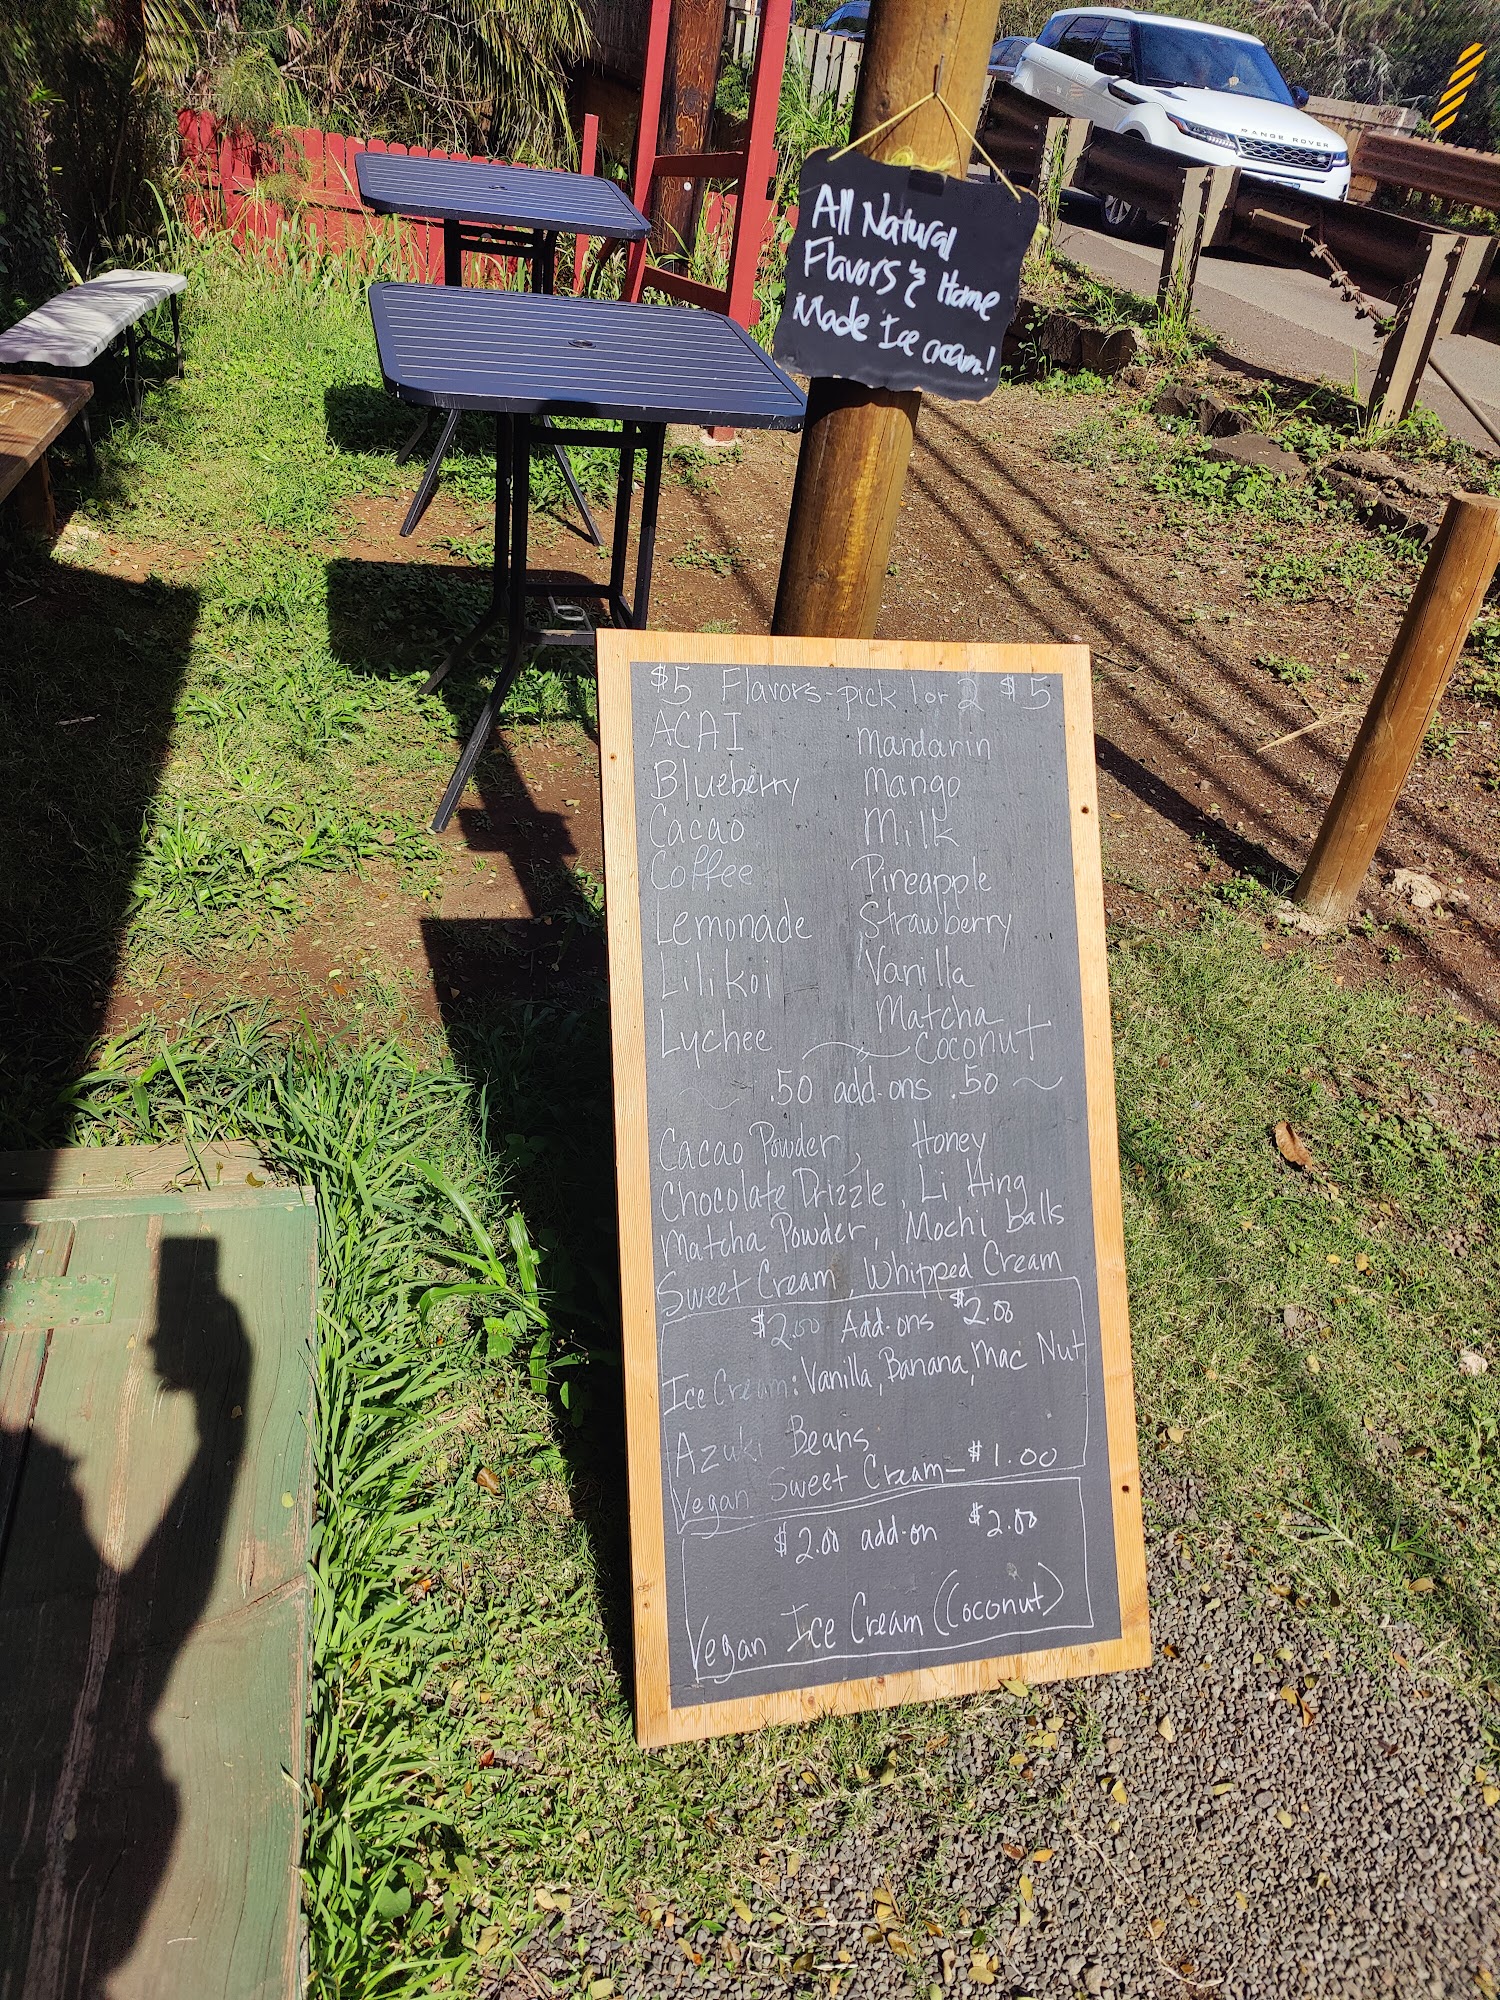 RANGE ROVER
All Natural
Flavors & Home
Made Ice cream!
$5 Flavors-pick 1 or 2 $5
ACAI Mandarin
Blueberry Mango
Cacao Milk
Coffee Pineapple
Lemonade Strawberry
Lilikoi Vanilla
Matcha
Lychee Coconut
.50 add-ons .50
Cacao Powder, Honey
Chocolate Drizzle, Li Hing
Matcha Powder, Mochi Balls
Sweet Cream, Whipped Cream
$2.00 Add-ons $2.00
Ice Cream: Vanilla, Banana, Mac Nut
Azuki Beans
Vegan Sweet Cream - $1.00
$2.00 add-on $2.00
Vegan Ice Cream (Coconut)